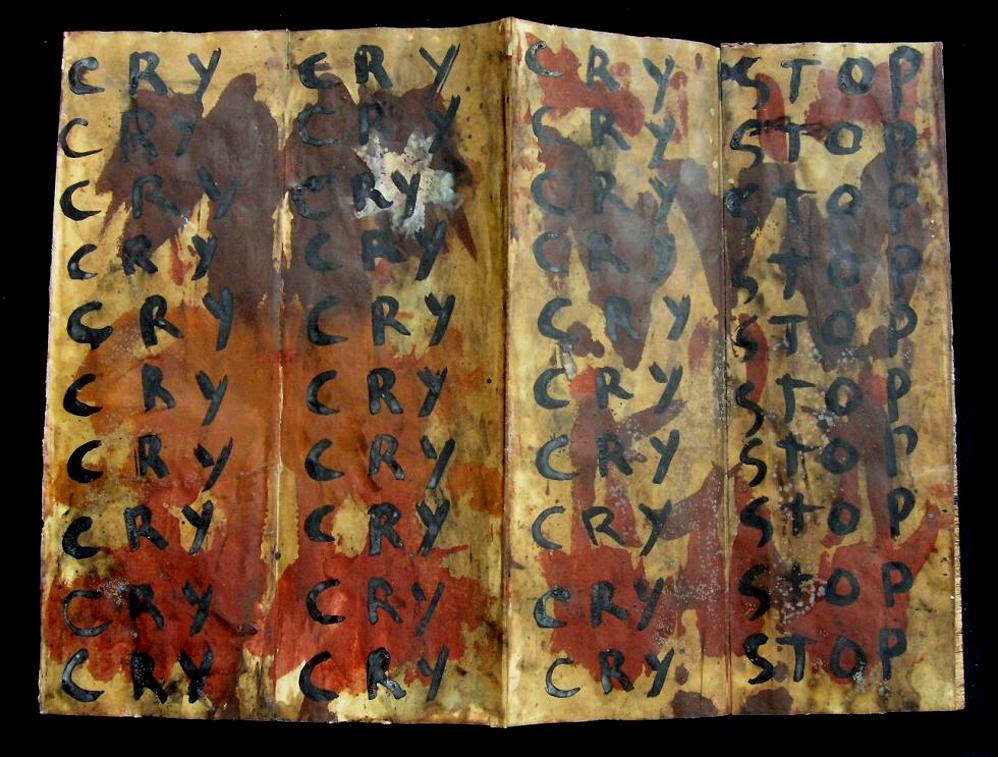 CRY CRY CRY STOP
CRY CRY CRY STOP
CRY CRY CRY StOP
CRY CRY CRY StOP
CRY CRY CRY STOP
CRY CRY CRY StOP
CRY CRY CRY StOP
CRY CRY CRY StOP
CRY CRY CRY StOP
CRY CRY CRY STOP